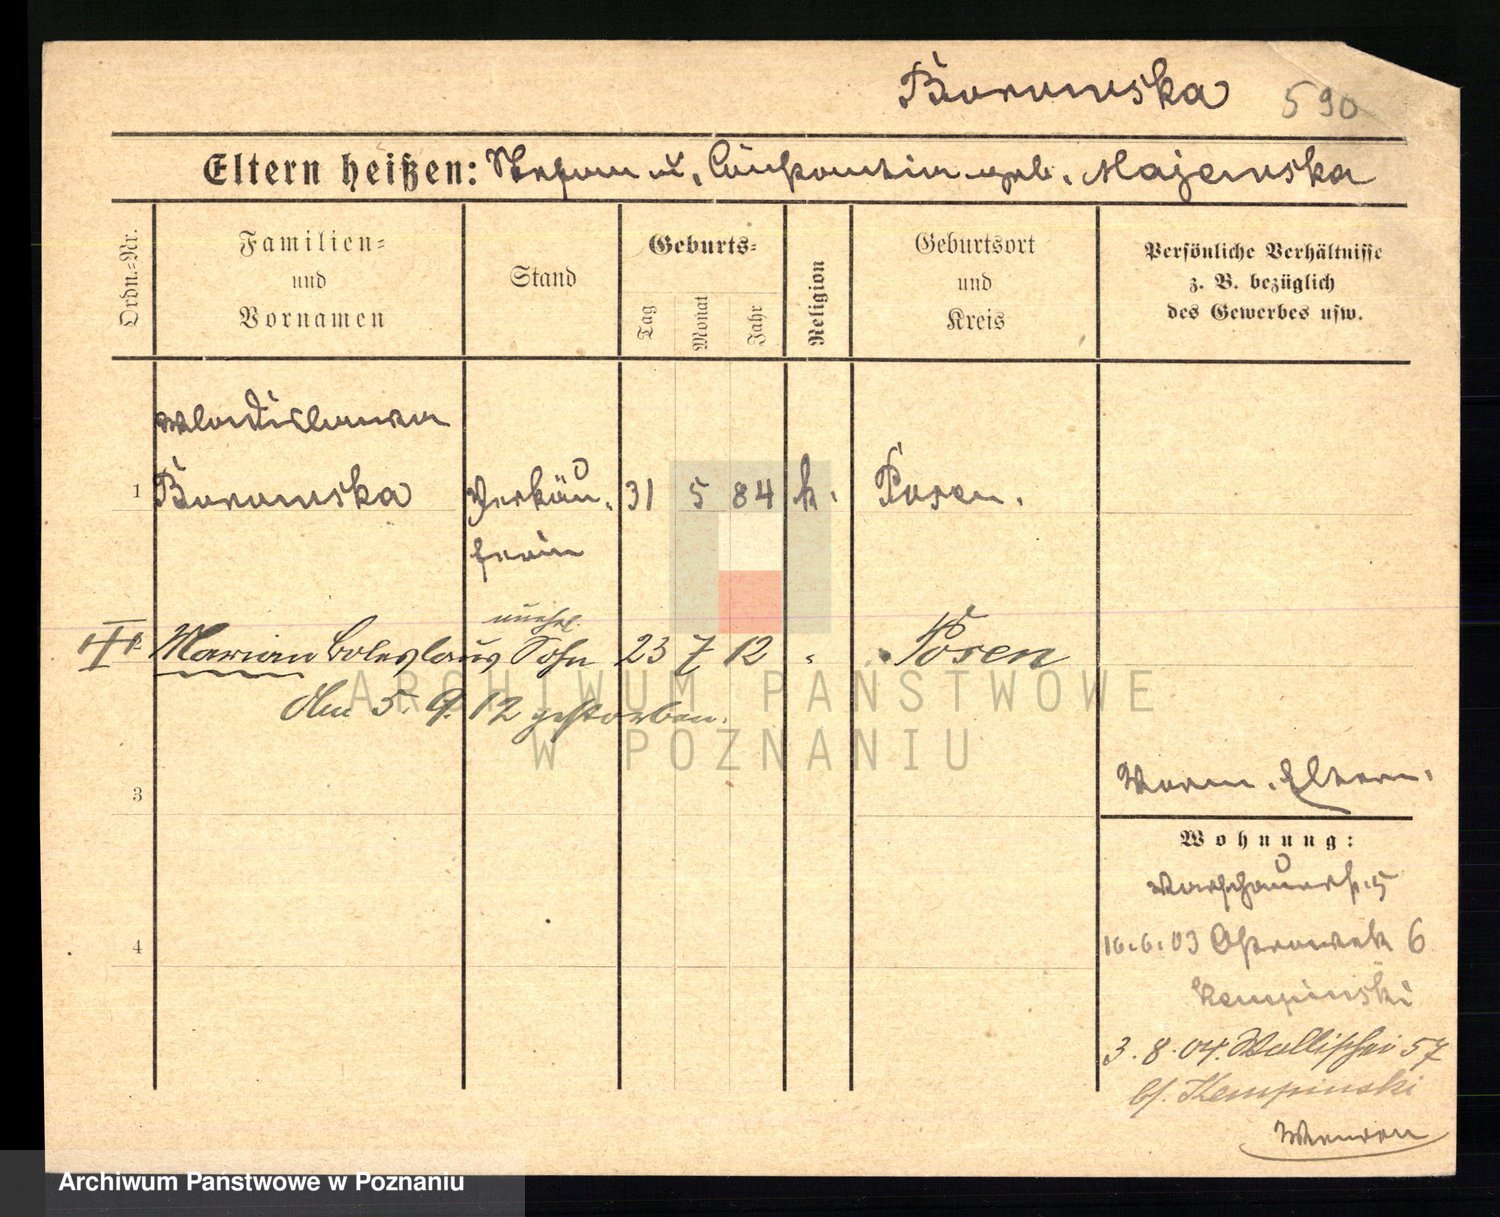 Borowska 590
Eltern heißen: Stefan u. Constantia geb. Majewska
Ordn.=Nr.
Familien=
und
Vornamen
Stand
Geburts=
Tag
Monat
Jahr
Religion
Geburtsort
und
Kreis
Persönliche Verhältnisse
z. B. bezüglich
des Gewerbes usw.
Wladislawa
1 Borowska Verkäu- 31 5 84 k. Posen.
ferin
unehel.
Marian Boleslaus Sohn 23 7 12 " Posen
Am 5. 9. 12 gestorben.
ARCHIWUM PAŃSTWOWE
W POZNANIU
3
Worm. Eltern.
Wohnung:
Warschauerstr. 5
4
16.6.03 Ostrowek 6
Kempinski
3.8.04. Wallischei 57
b/. Kempinski
Archiwum Państwowe w Poznaniu